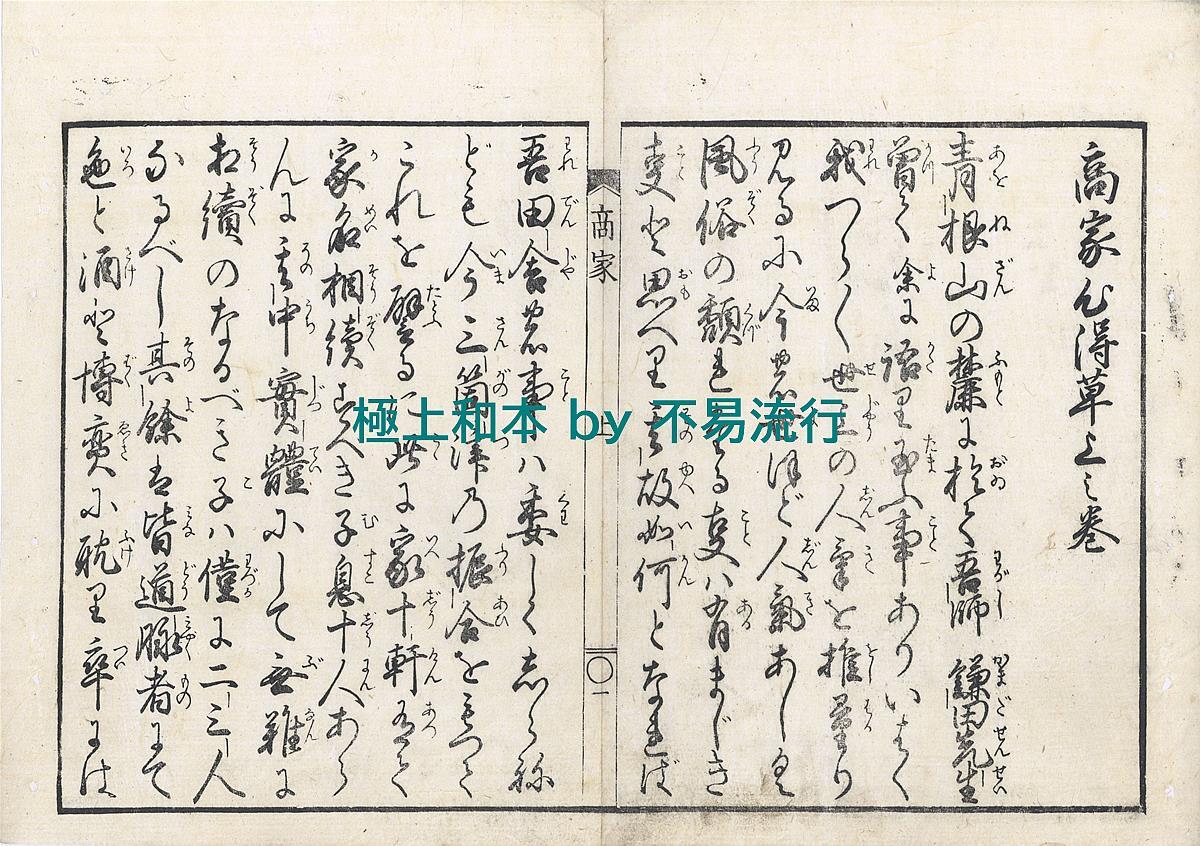 商家心得草上之巻
青根山の麓に於て吾師鎌田先生
曽て余に語り玉ふ事ありいはく
我つら〳〵世上の人気を推量り
見るに今の人氣あしく
風俗の頽れたる事ハ有まじき
事と思へり其故如何となれば
商家
上
〇一
吾田舎の事ハ委しくしらね
ども今三箇津乃振合をもつて
これを譬るに此に家十軒有て
家名相續すべき子息十人あら
んに其中實體にして無難に
相續のなるべき子ハ僅に二三人
なるべし其餘は皆道脇者にて
色と酒と博奕に耽り卒には
極上和本 by 不易流行